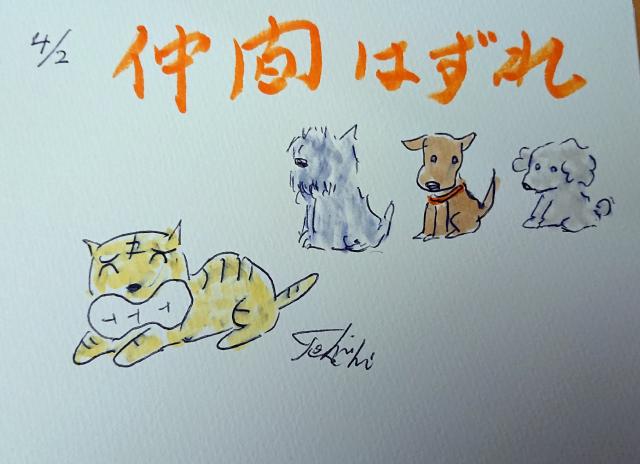 4/2
仲間はずれ
Toshihi